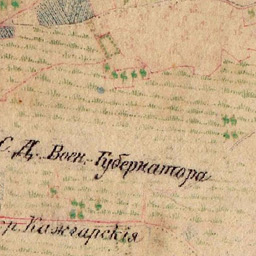 С. Д. Воен. Губернатора
ер. Кажгарскія